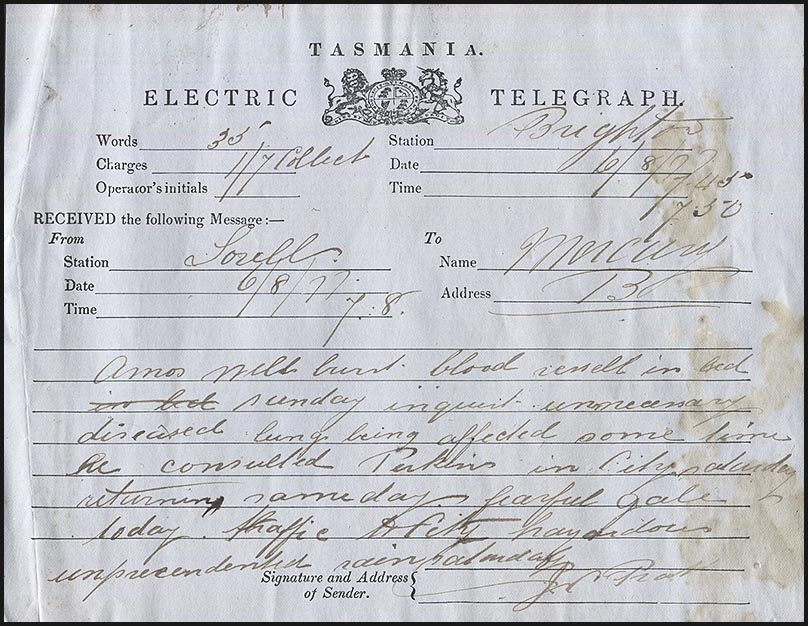 TASMANIA.
ELECTRIC TELEGRAPH.
Words 35 Station Brighton
Charges 1/7 Collect Date 6/8/77
Operator's initials Time 7.45
7.50
RECEIVED the following Message:—
From To
Station Sorell Name Mercury
Date 6/8/77 Address
Time 7.8.
Amos Webb burst blood vessell in bed
in bed sunday inquest unnecessary
diseased lungs being affected some time
he consulted Perkins in City saturday
returning same day fearful gale
today traffic City hazardous
unprecendented rain saturday
Signature and Address
of Sender.